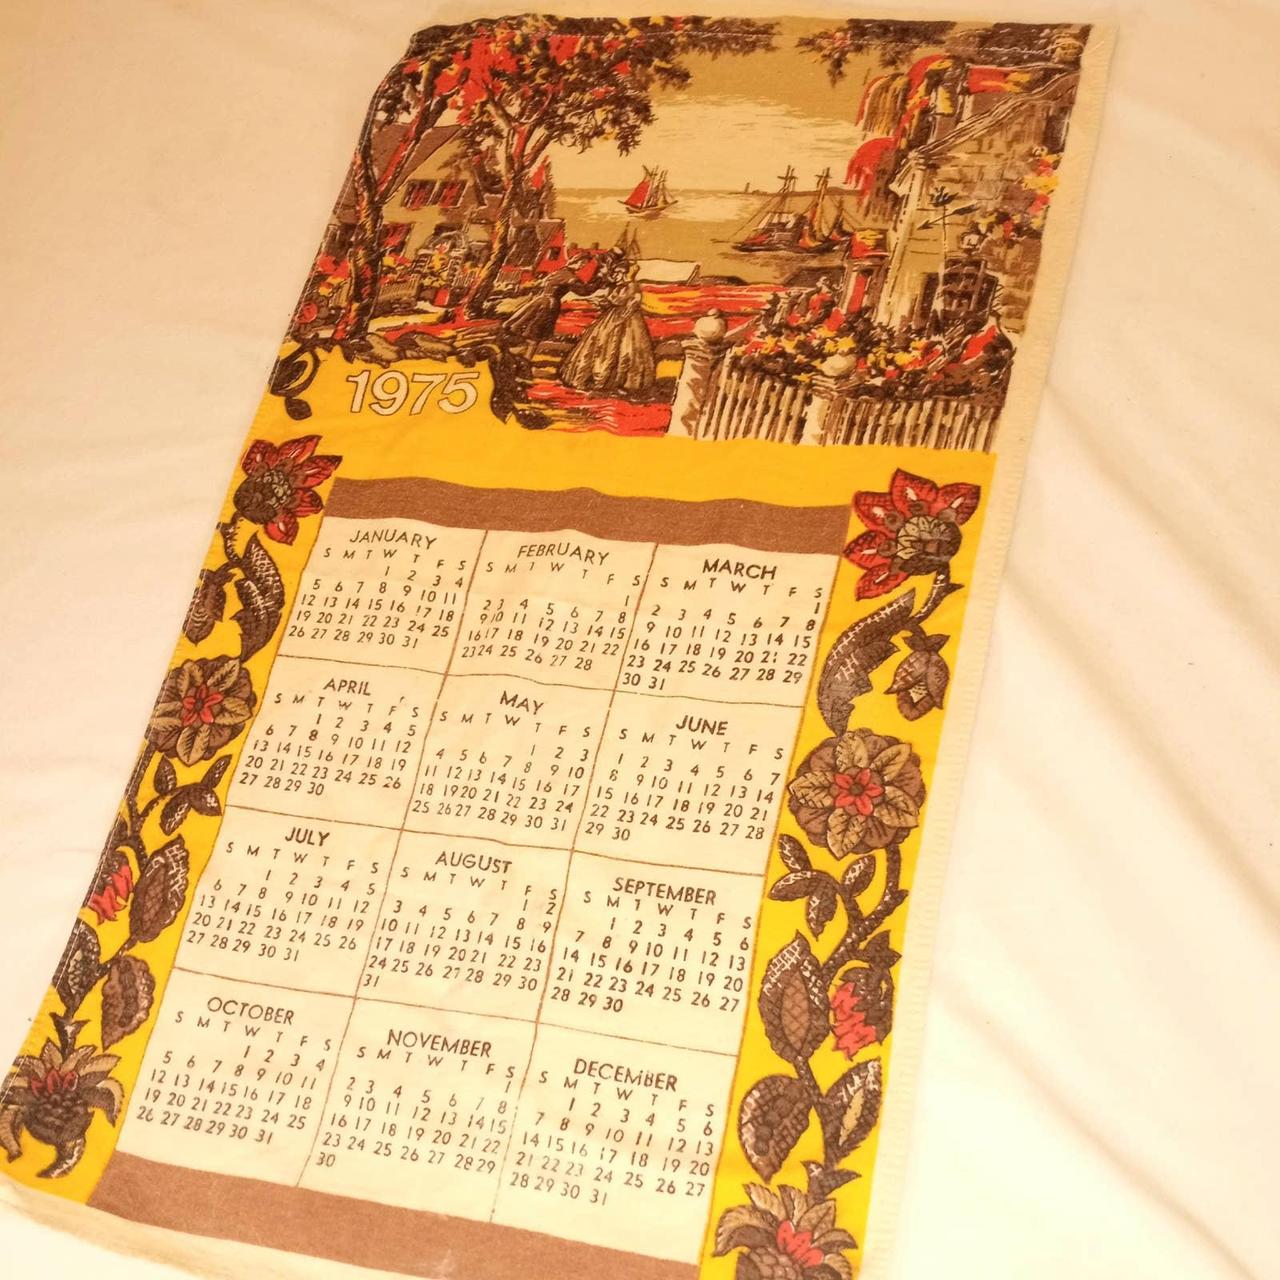 1975
JANUARY
S M T W T F S
1 2 3 4
5 6 7 8 9 10 11
12 13 14 15 16 17 18
19 20 21 22 23 24 25
26 27 28 29 30 31
FEBRUARY
S M T W T F S
1
2 3 4 5 6 7 8
9 10 11 12 13 14 15
16 17 18 19 20 21 22
23 24 25 26 27 28
MARCH
S M T W T F S
1
2 3 4 5 6 7 8
9 10 11 12 13 14 15
16 17 18 19 20 21 22
23 24 25 26 27 28 29
30 31
APRIL
S M T W T F S
1 2 3 4 5
6 7 8 9 10 11 12
13 14 15 16 17 18 19
20 21 22 23 24 25 26
27 28 29 30
MAY
S M T W T F S
1 2 3
4 5 6 7 8 9 10
11 12 13 14 15 16 17
18 19 20 21 22 23 24
25 26 27 28 29 30 31
JUNE
S M T W T F S
1 2 3 4 5 6 7
8 9 10 11 12 13 14
15 16 17 18 19 20 21
22 23 24 25 26 27 28
29 30
JULY
S M T W T F S
1 2 3 4 5
6 7 8 9 10 11 12
13 14 15 16 17 18 19
20 21 22 23 24 25 26
27 28 29 30 31
AUGUST
S M T W T F S
1 2
3 4 5 6 7 8 9
10 11 12 13 14 15 16
17 18 19 20 21 22 23
24 25 26 27 28 29 30
31
SEPTEMBER
S M T W T F S
1 2 3 4 5 6
7 8 9 10 11 12 13
14 15 16 17 18 19 20
21 22 23 24 25 26 27
28 29 30
OCTOBER
S M T W T F S
1 2 3 4
5 6 7 8 9 10 11
12 13 14 15 16 17 18
19 20 21 22 23 24 25
26 27 28 29 30 31
NOVEMBER
S M T W T F S
1
2 3 4 5 6 7 8
9 10 11 12 13 14 15
16 17 18 19 20 21 22
23 24 25 26 27 28 29
30
DECEMBER
S M T W T F S
1 2 3 4 5 6
7 8 9 10 11 12 13
14 15 16 17 18 19 20
21 22 23 24 25 26 27
28 29 30 31